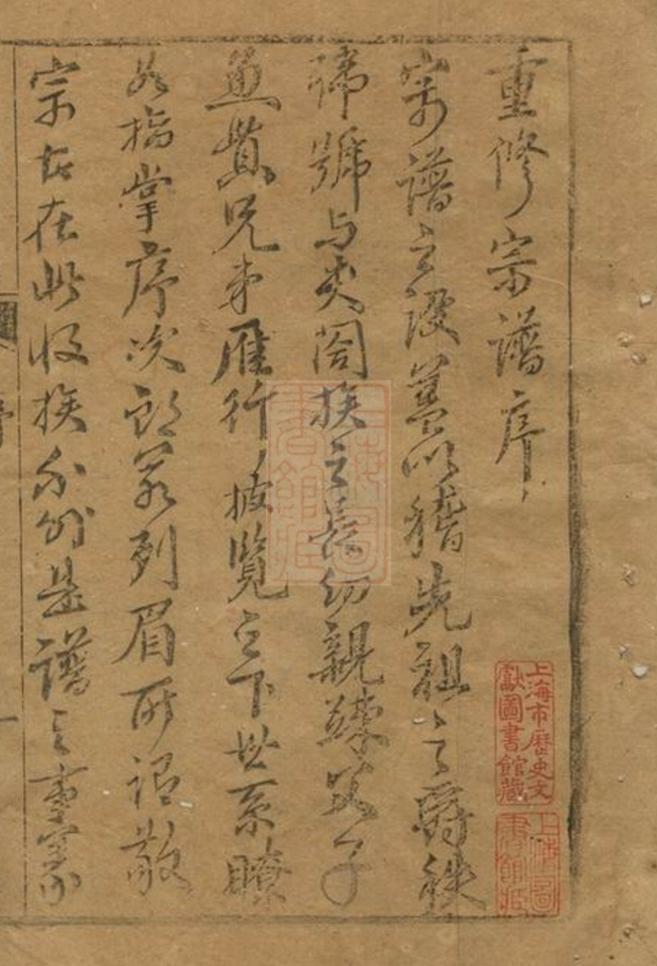 重修宗譜序
宗譜之設蓋以稽先祖之爵秩
諦號与夫闔族之長幼親疎父子
兄弟雁行披覽之下世系瞭
如指掌序次昭若列眉所謂敬
宗在此收族亦在是譜之事
上海市歷史文獻圖書館藏
上海圖書館藏
上海圖書館藏